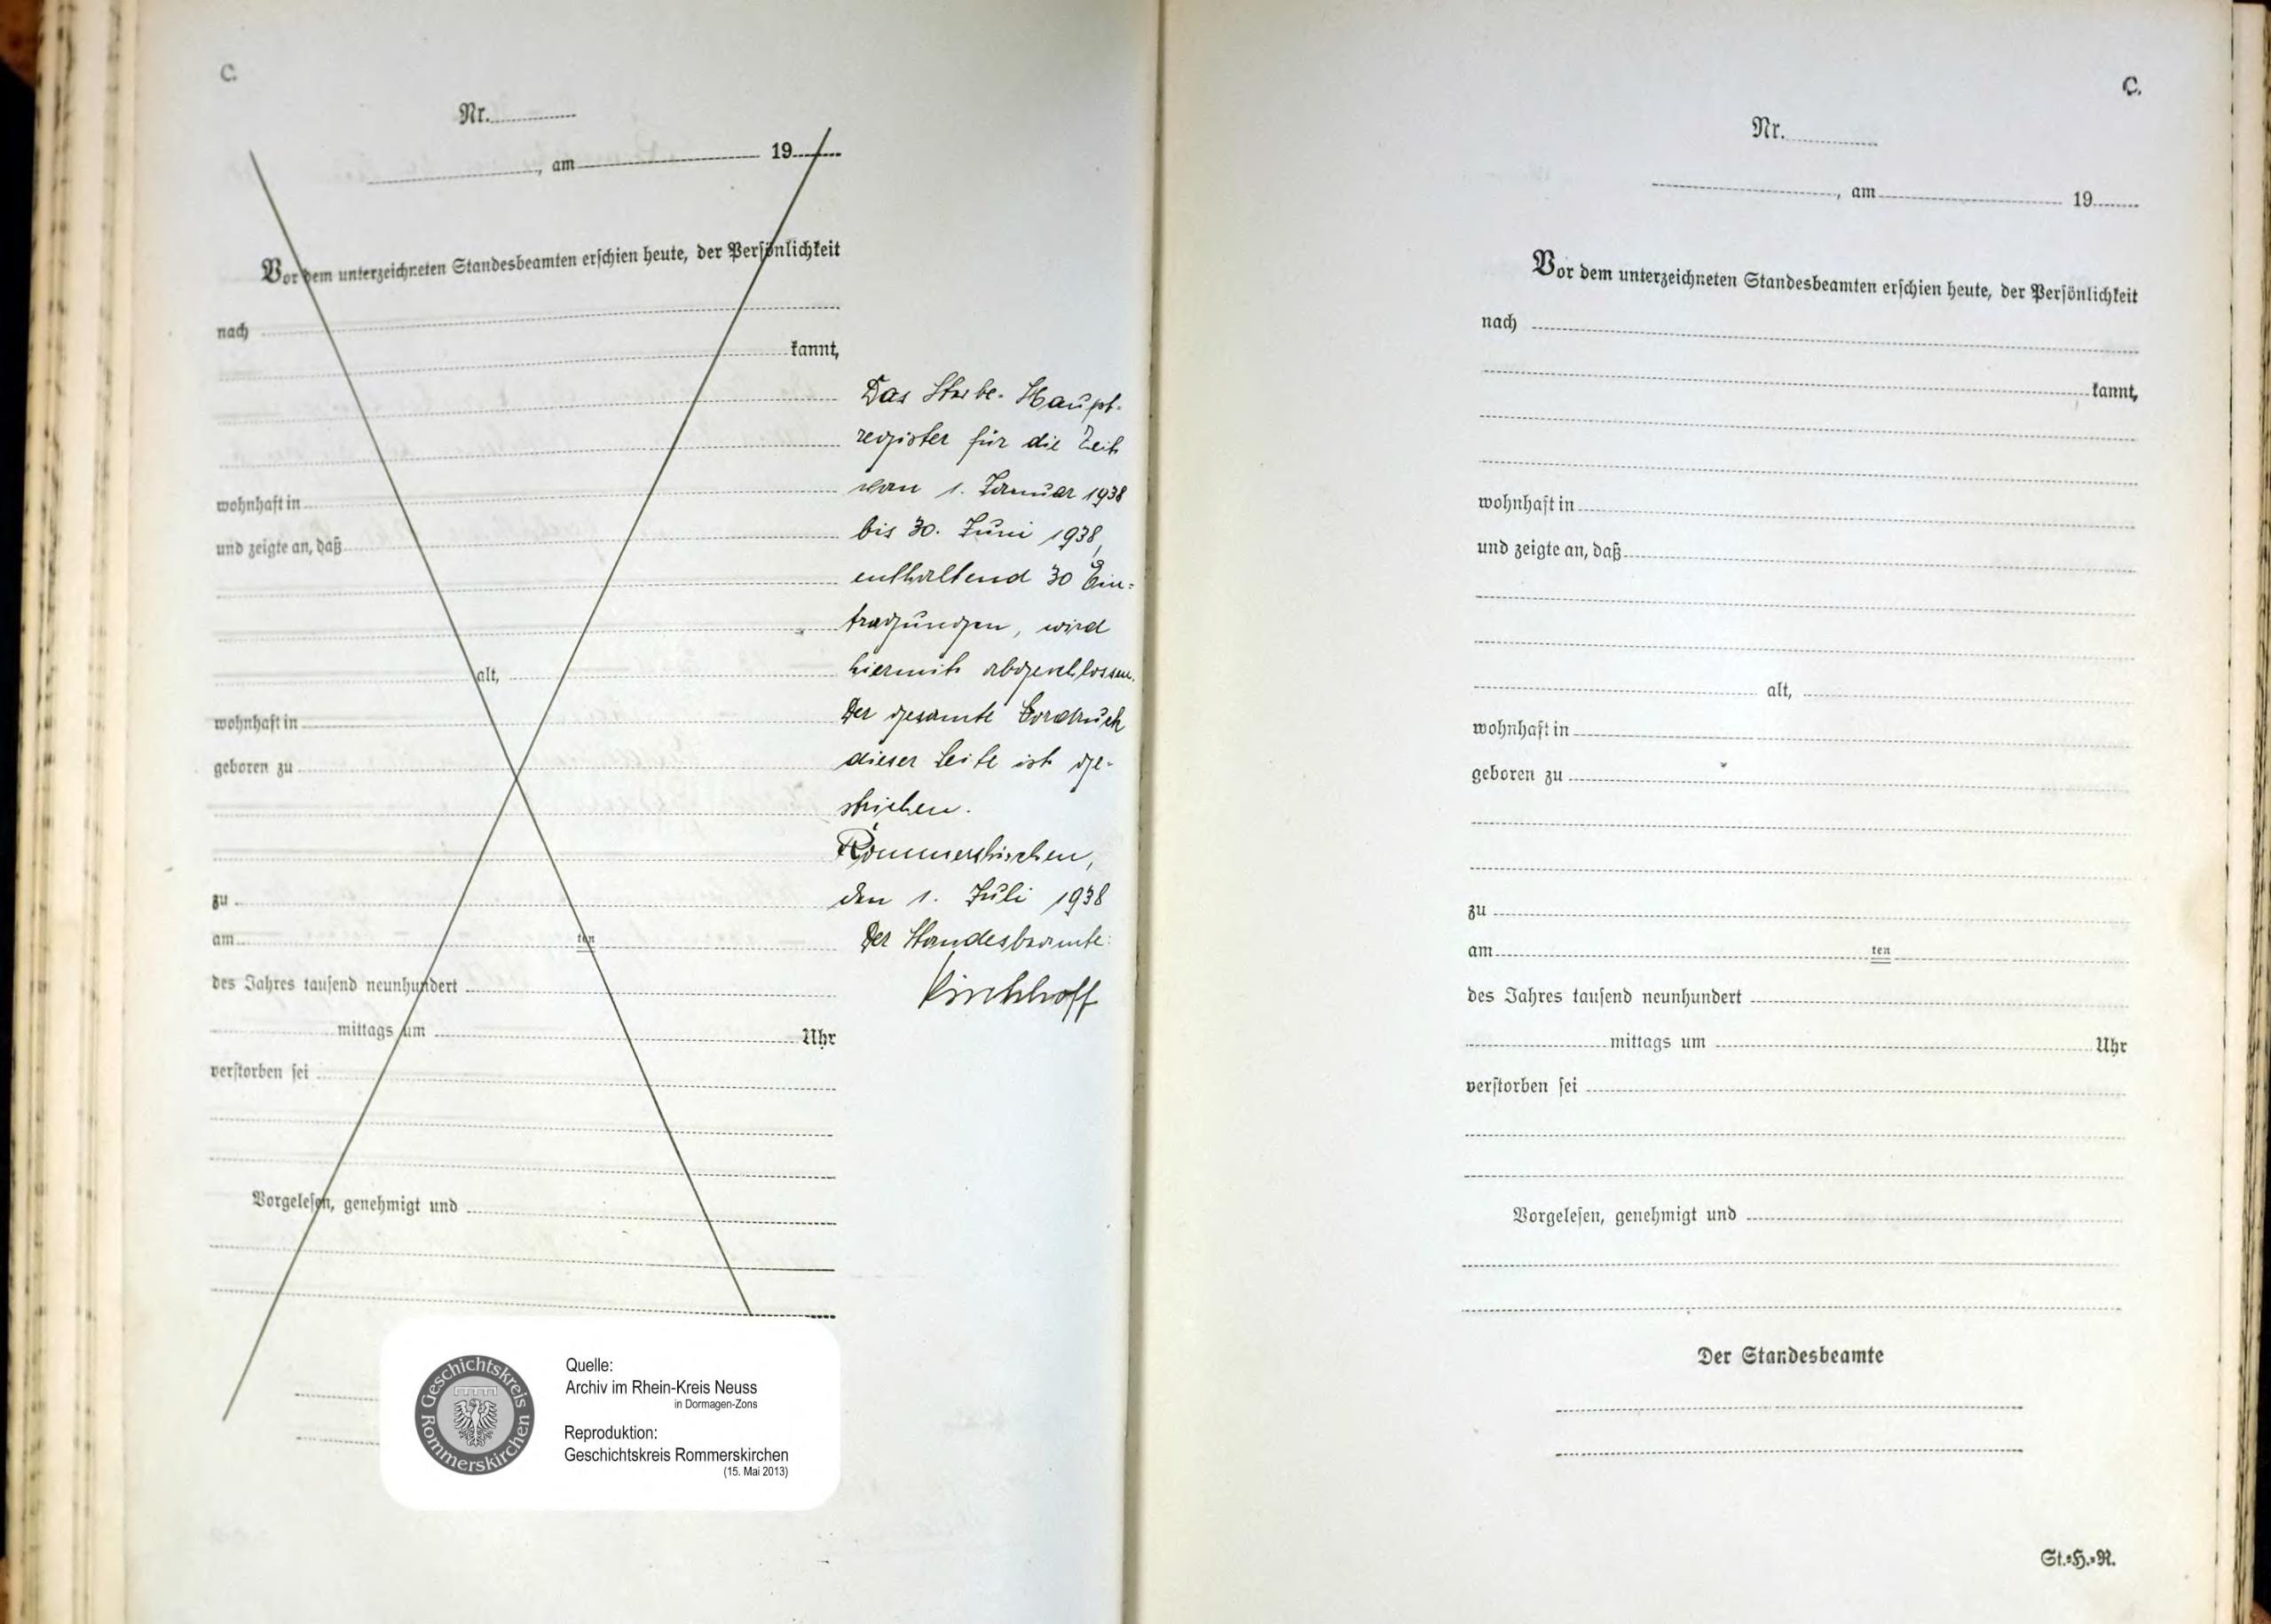 C.
Nr.
, am 19
Vor dem unterzeichneten Standesbeamten erschien heute, der Persönlichkeit
nach
kannt,
wohnhaft in
und zeigte an, daß
alt,
wohnhaft in
geboren zu
zu
am ten
des Jahres tausend neunhundert
mittags um Uhr
verstorben sei
Vorgelesen, genehmigt und
Das Sterbe-Haupt-
register für die Zeit
vom 1. Januar 1938
bis 30. Juni 1938,
enthaltend 30 Ein=
tragungen, wird
hiermit abgeschlossen.
Der gesamte Vordruck
dieser Seite ist ge-
strichen.
Rommerskirchen,
den 1. Juli 1938
Der Standesbeamte:
Kirchhoff
Geschichtskreis Rommerskirchen
Quelle:
Archiv im Rhein-Kreis Neuss
in Dormagen-Zons
Reproduktion:
Geschichtskreis Rommerskirchen
(15. Mai 2013)
C.
Nr.
, am 19
Vor dem unterzeichneten Standesbeamten erschien heute, der Persönlichkeit
nach
kannt,
wohnhaft in
und zeigte an, daß
alt,
wohnhaft in
geboren zu
zu
am ten
des Jahres tausend neunhundert
mittags um Uhr
verstorben sei
Vorgelesen, genehmigt und
Der Standesbeamte
St.=H.=R.